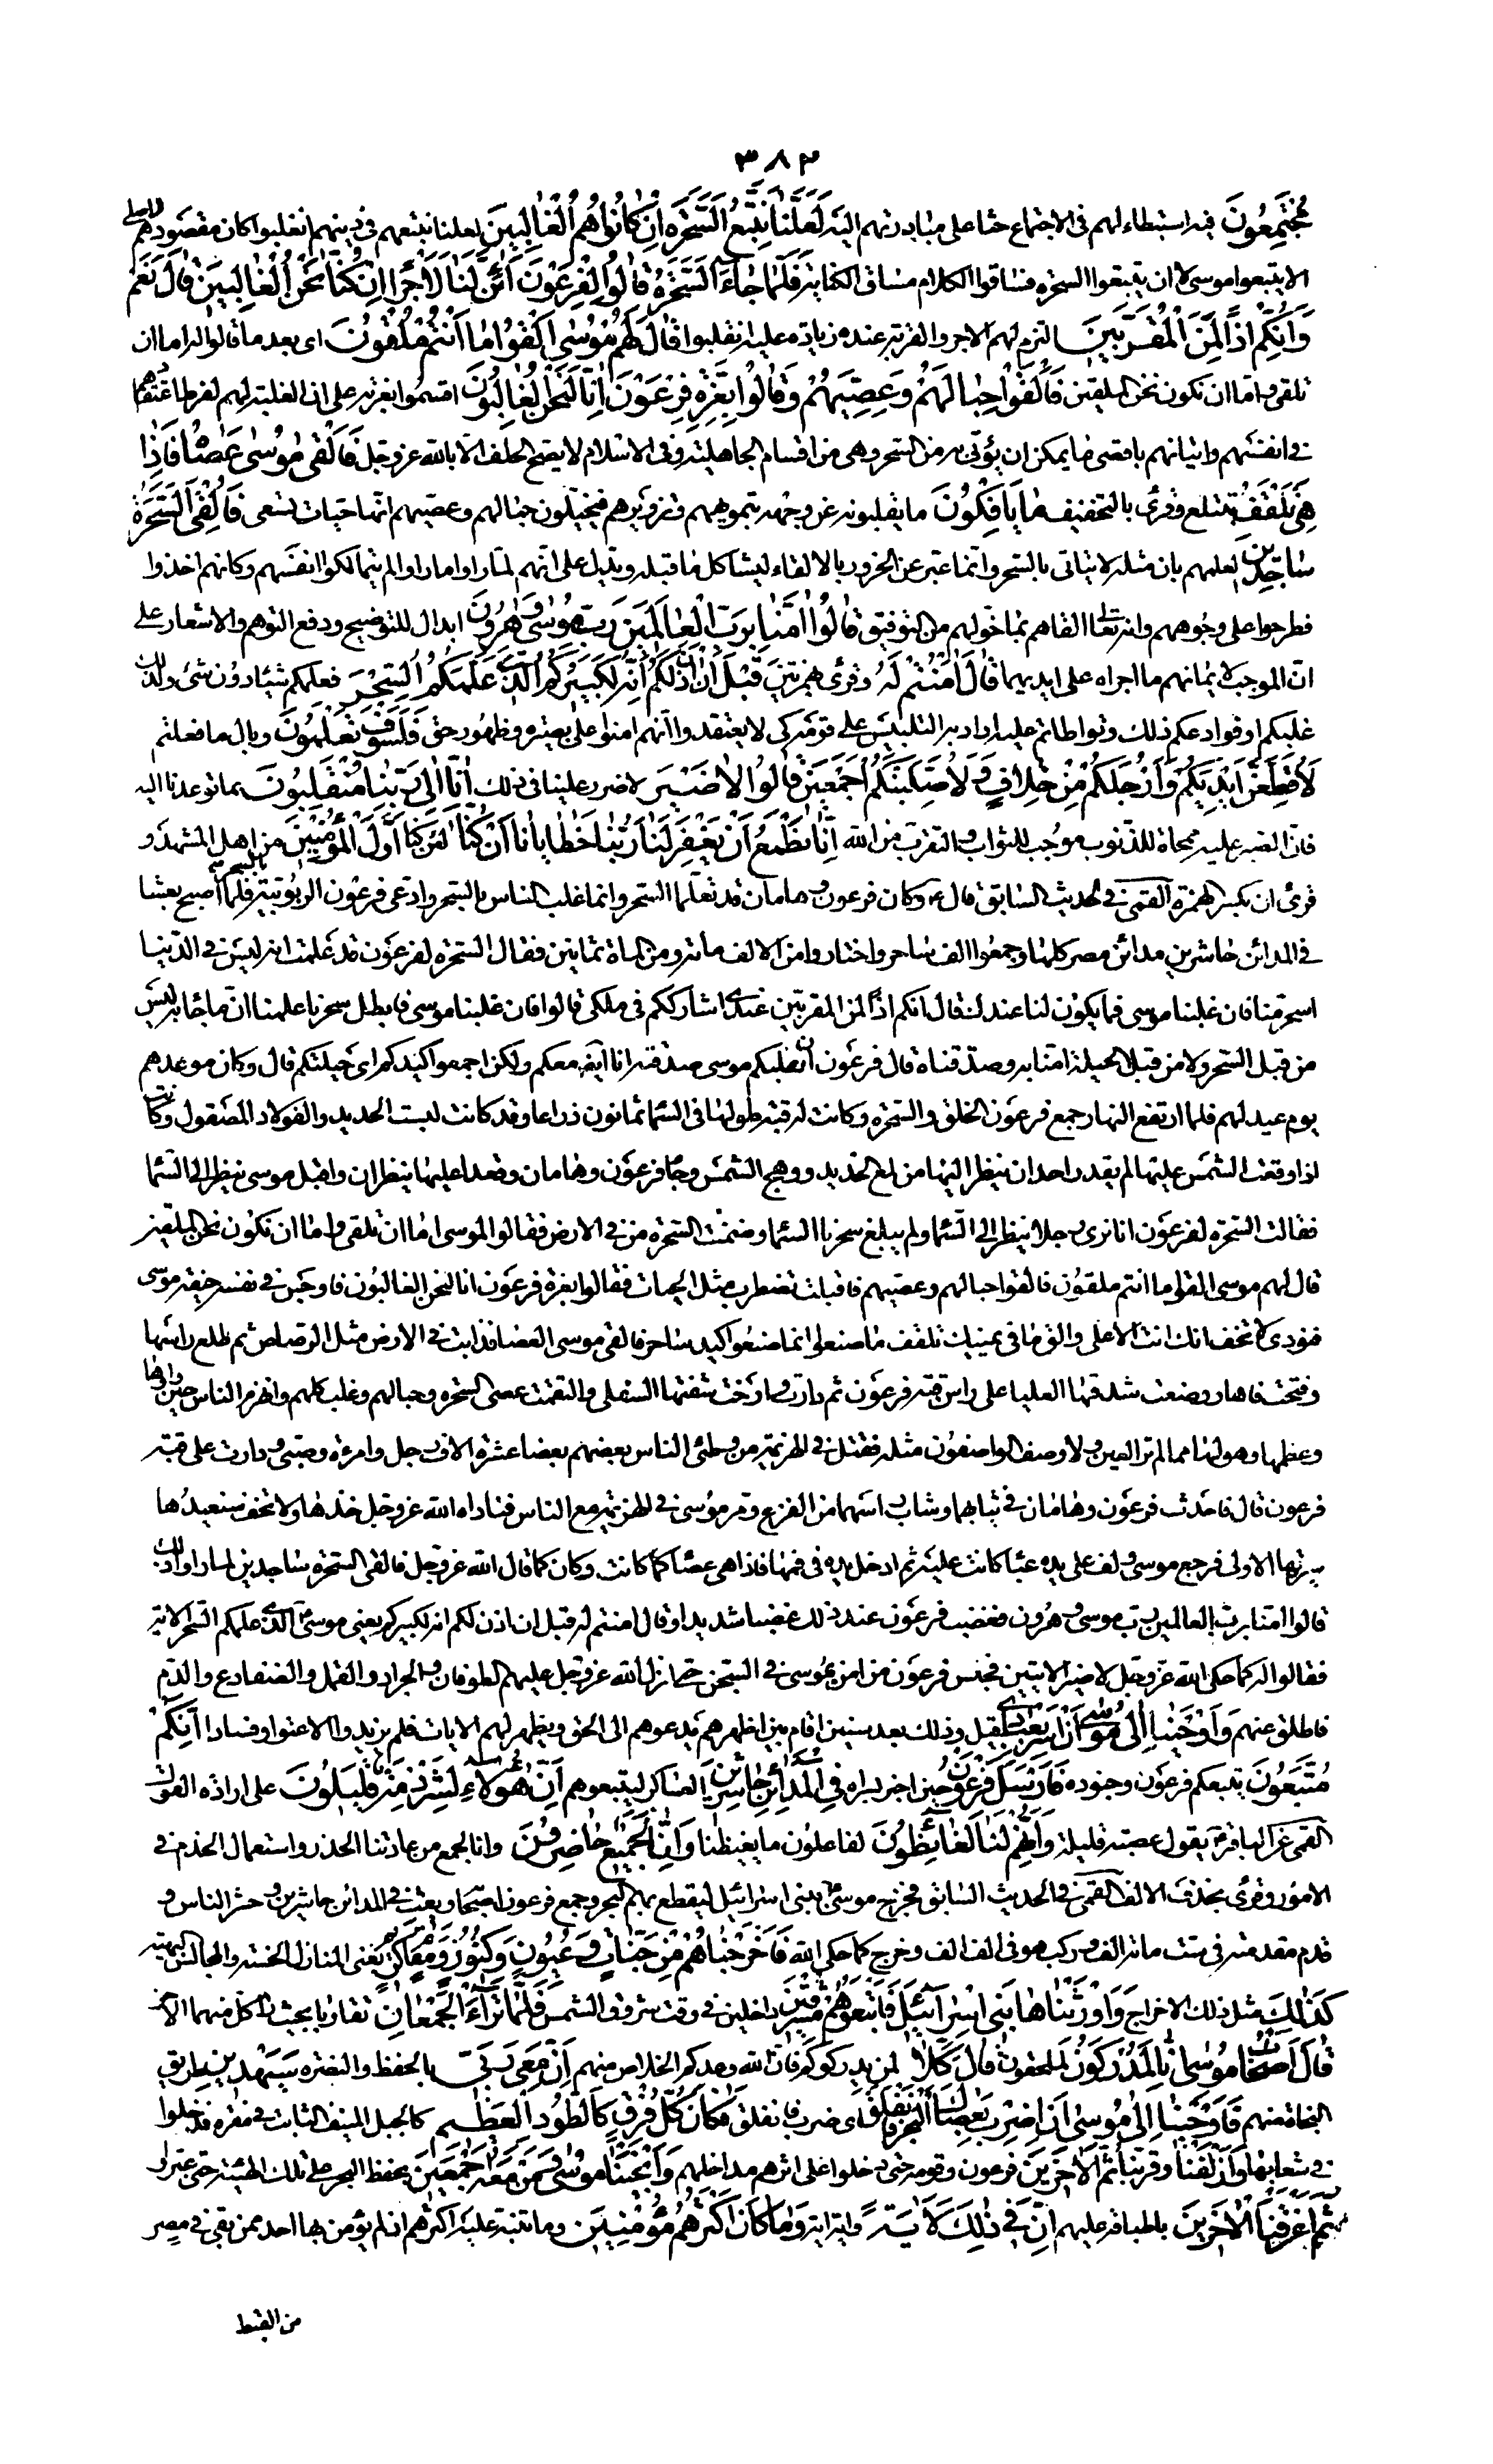 ٣٨٢
مُجْتَمِعُونَ فيه استبطاء لهم فى الاجتماع حثا على مبادرتهم اليه لَعَلَّنٰا نَتَّبِعُ اَلسَّحَرَةَ إِنْ كٰانُوا هُمُ اَلْغٰالِبِينَ لعلنا نتبعهم فى دينهم ان غلبوا كان مقصودهم الاصلى
الا يتبعوا موسى لا ان يتبعوا السحرة فساقوا الكلام مساق الكناية فَلَمّٰا جٰاءَ اَلسَّحَرَةُ قٰالُوا لِفِرْعَوْنَ أَئِنَّ لَنٰا لَأَجْراً إِنْ كُنّٰا نَحْنُ اَلْغٰالِبِينَ قٰالَ نَعَمْ
وَإِنَّكُمْ إِذاً لَمِنَ اَلْمُقَرَّبِينَ التزم لهم الاجر والقربة عنده زيادة عليه ان غلبوا قٰالَ لَهُمْ مُوسىٰ أَلْقُوا مٰا أَنْتُمْ مُلْقُونَ اى بعد ما قالوا له اما ان
تلقى و اما ان نكون نحن الملقين فَأَلْقَوْا حِبٰالَهُمْ وَعِصِيَّهُمْ وَقٰالُوا بِعِزَّةِ فِرْعَوْنَ إِنّٰا لَنَحْنُ اَلْغٰالِبُونَ اقسموا بعزته على ان الغلبة لهم لفرط اعتقادهم
فى انفسهم واتيانهم باقصى ما يمكن ان يؤتى به من السحر وهى من اقسام الجاهلية وفى الاسلام لا يصح الحلف الا بالله عز وجل فَأَلْقىٰ مُوسىٰ عَصٰاهُ فَإِذٰا
هِيَ تَلْقَفُ تبتلع وقرئ بالتخفيف مٰا يَأْفِكُونَ ما يقلبونه عن وجهه بتمويههم وتزويرهم فيخيلون حبالهم وعصيهم انها حيات تسعى فَأُلْقِيَ اَلسَّحَرَةُ
سٰاجِدِينَ لعلمهم بان مثله لا يتاتى بالسحر وانما عبر عن الخرور بالالقاء ليشاكل ما قبله ويدل على انهم لما راوا ما راوا لم يتمالكوا انفسهم وكانهم اخذوا
فطرحوا على وجوههم وانه تعالى القاهم بما خولهم من التوفيق قٰالُوا آمَنّٰا بِرَبِّ اَلْعٰالَمِينَ رَبِّ مُوسىٰ وَهٰرُونَ ابدال للتوضيح ودفع التوهم والاشعار على
ان الموجب لايمانهم ما اجراه على ايديهما قٰالَ آمَنْتُمْ لَهُ وقرئ بهمزتين قَبْلَ أَنْ آذَنَ لَكُمْ إِنَّهُ لَكَبِيرُكُمُ اَلَّذِي عَلَّمَكُمُ اَلسِّحْرَ فعلمكم شيئا دون شئ ولذلك
غلبكم او فوادعكم ذلك وتواطاتم عليه اراد به التلبيس على قومه كى لا يعتقدوا انهم امنوا على بصيرة وظهور حق فَلَسَوْفَ تَعْلَمُونَ وبال ما فعلتم
لَأُقَطِّعَنَّ أَيْدِيَكُمْ وَأَرْجُلَكُمْ مِنْ خِلاٰفٍ وَلَأُصَلِّبَنَّكُمْ أَجْمَعِينَ قٰالُوا لاٰ ضَيْرَ لا ضرر علينا فى ذلك إِنّٰا إِلىٰ رَبِّنٰا مُنْقَلِبُونَ بما توعدنا اليه
فان الصبر عليه ممحاة للذنوب موجب للثواب والتقرب من الله إِنّٰا نَطْمَعُ أَنْ يَغْفِرَ لَنٰا رَبُّنٰا خَطٰايٰانٰا أَنْ كُنّٰا لئن كنا أَوَّلَ اَلْمُؤْمِنِينَ من اهل المشهد و
قرئ ان بكسر الهمزة القمى فى الحديث السابق قال و كان فرعون وهامان قد تعلما السحر وانما غلب الناس بالسحر وادعى فرعون الربوبية بالسحر فلما اصبح بعث
فى المدائن حاشرين مدائن مصر كلها وجمعوا الف ساحر واختاروا من الالف مائة ومن المائة ثمانين فقال السحرة لفرعون قد علمت انه ليس فى الدنيا
اسحر منا فان غلبنا موسى فما يكون لنا عندك قال انكم اذا لمن المقربين عندى اشارككم فى ملكى قالوا فان غلبنا موسى فابطل سحرنا علمنا ان ما جاء به ليس
من قبل السحر ولا من قبل الحيلة امنا به وصدقناه قال فرعون ان غلبكم موسى صدقته انا ايضا معكم ولكن اجمعوا كيدكم اى حيلتكم قال وكان موعدهم
يوم عيد لهم فلما ارتفع النهار جمع فرعون الخلق والسحرة وكانت له قبة طولها فى السماء ثمانون ذراعا وقد كانت لبست الحديد والفولاد المصقول وكانت
اذا وقعت الشمس عليها لم يقدر احد ان ينظر اليها من لمع الحديد ووهج الشمس وجاء فرعون وهامان وقعدا عليها ينظران واقبل موسى ينظر الى السماء
فقالت السحرة لفرعون انا نرى رجلا ينظر الى السماء ولم يبلغ سحرنا السماء وضمنت السحرة من فى الارض فقالوا لموسى اما ان تلقى واما ان نكون نحن الملقين
قال لهم موسى القوا ما انتم ملقون فالقوا حبالهم وعصيهم فاقبلت تضطرب مثل الحيات فقالوا بعزة فرعون انا لنحن الغالبون فاوجس فى نفسه خيفة موسى
فنودى لا تخف انك انت الاعلى والق ما فى يمينك تلقف ما صنعوا انما صنعوا كيد ساحر فالقى موسى العصا فذابت فى الارض مثل الرصاص ثم طلع راسها
وفتحت فاها ووضعت شدقها العليا على راس قبة فرعون ثم دارت وارخت شفتها السفلى والتقمت عصى السحرة وحبالهم وغلب كلهم وانهزم الناس حين راوها
وعظمها وهولها مما لم تر العين ولا وصف الواصفون مثله فقتل فى الهزيمة من وطئ الناس بعضهم بعضا عشرة الاف رجل وامرءة وصبى ودارت على قبة
فرعون قال فاحدث فرعون وهامان فى ثيابهما وشاب راسهما من الفزع ومر موسى فى الهزيمة مع الناس فناداه الله عز وجل خذها ولا تخف سنعيدها
سيرتها الاولى فرجع موسى ولف على يده عباء كانت عليه ثم ادخل يده فى فمها فاذا هى عصا كما كانت وكان كما قال الله عز وجل فالقى السحرة ساجدين لما راوا ذلك
قالوا امنا برب العالمين رب موسى وهرون فغضب فرعون عند ذلك غضبا شديدا وقال امنتم له قبل ان اذن لكم انه لكبيركم يعنى موسى الذى علمكم السحر الاية
فقالوا له كما حكى الله عز وجل لا ضير الايتين فحبس فرعون من امن بموسى فى السجن حتى انزل الله عز وجل عليهم الطوفان والجراد والقمل والضفادع والدم
فاطلق عنهم وَأَوْحَيْنٰا إِلىٰ مُوسىٰ أَنْ أَسْرِ بِعِبٰادِي قيل وذلك بعد سنين اقام بين اظهرهم يدعوهم الى الحق ويظهر لهم الايات فلم يزيدوا الا عتوا وفسادا إِنَّكُمْ
مُتَّبَعُونَ يتبعكم فرعون وجنوده فَأَرْسَلَ فِرْعَوْنُ حين اخبر بسراه فِي اَلْمَدٰائِنِ حٰاشِرِينَ العساكر ليتبعوهم إِنَّ هٰؤُلاٰءِ لَشِرْذِمَةٌ قَلِيلُونَ على ارادة القول
القمى عن الباقر يقول عصبة قليلة وَإِنَّهُمْ لَنٰا لَغٰائِظُونَ لفاعلون ما يغيظنا وَإِنّٰا لَجَمِيعٌ حٰاذِرُونَ وانا لجمع من عادتنا الحذر واستعمال الحزم فى
الامور وقرئ بحذف الالف القمى فى الحديث السابق فخرج موسى ببنى اسرائيل ليقطع بهم البحر وجمع فرعون اصحابه وبعث فى المدائن حاشرين وحشر الناس و
قدم مقدمته فى ست مائة الف وركب هو فى الف الف وخرج كما حكى الله فَأَخْرَجْنٰاهُمْ مِنْ جَنّٰاتٍ وَعُيُونٍ وَكُنُوزٍ وَمَقٰامٍ كَرِيمٍ يعنى المنازل الحسنة والمجالس البهية
كَذٰلِكَ مثل ذلك الاخراج وَأَوْرَثْنٰاهٰا بَنِي إِسْرٰائِيلَ فَأَتْبَعُوهُمْ مُشْرِقِينَ داخلين فى وقت شروق الشمس فَلَمّٰا تَرٰاءَا اَلْجَمْعٰانِ تقاربا بحيث راى كل منهما الاخر
قٰالَ أَصْحٰابُ مُوسىٰ إِنّٰا لَمُدْرَكُونَ لملحقون قٰالَ كَلاّٰ لن يدركوكم فان الله وعدكم الخلاص منهم إِنَّ مَعِي رَبِّي بالحفظ والنصرة سَيَهْدِينِ طريق
النجاة منهم فَأَوْحَيْنٰا إِلىٰ مُوسىٰ أَنِ اِضْرِبْ بِعَصٰاكَ اَلْبَحْرَ فَانْفَلَقَ اى ضرب فانفلق فَكٰانَ كُلُّ فِرْقٍ كَالطَّوْدِ اَلْعَظِيمِ كالجبل المنيف الثابت فى مقره فدخلوا
فى شعابها وَأَزْلَفْنٰا وقربنا ثَمَّ اَلْآخَرِينَ فرعون وقومه حتى دخلوا على اثرهم مداخلهم وَأَنْجَيْنٰا مُوسىٰ وَمَنْ مَعَهُ أَجْمَعِينَ بحفظ البحر على تلك الهيئة حتى عبروا
ثُمَّ أَغْرَقْنَا اَلْآخَرِينَ باطباقه عليهم إِنَّ فِي ذٰلِكَ لَآيَةً واية اية وَمٰا كٰانَ أَكْثَرُهُمْ مُؤْمِنِينَ وما تنبه عليها اكثرهم اذ لم يؤمن بها احد ممن بقى فى مصر
من القبط